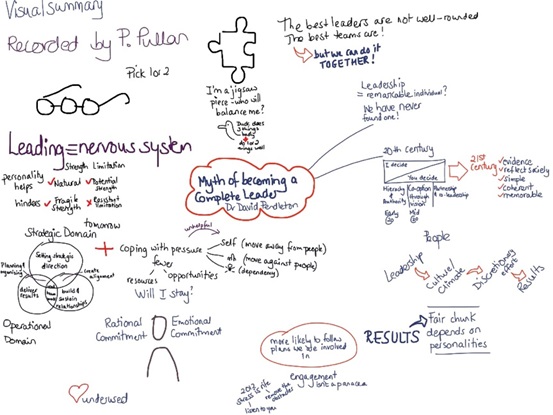 Visual Summary
Recorded by P. Pullan
Pick 1 or 2
The best leaders are not well-rounded
The best teams are!
but we can do it
TOGETHER!
I'm a jigsaw
piece - who will
balance me?
Duck does
3 things
badly
do 1 or 2
things well
Leadership
= remarkable individual?
We have never
found one!
Leading = nervous system
Strength Limitation
personality
helps
Natural
Potential
strength
hinders
Fragile
strength
Resistant
limitation
Myth of becoming a
Complete Leader
Dr David Pendleton
20th century
I decide
You decide
Hierarchy
Authority
Early
Mid
21st century
evidence
reflect society
simple
coherent
memorable
tomorrow
Strategic Domain
Setting strategic
direction
Planning &
organising
create
alignment
deliver
results
build &
sustain
relationships
Operational
Domain
unhelpful
Coping with pressure
self (move away from people)
(move against people)
(dependency)
fewer
resources
opportunities
Will I stay?
Rational
Commitment
Emotional
Commitment
underused
People
Leadership
Culture/
Climate
Discretionary
effort
Results
more likely to follow
plans we're involved
in
RESULTS
Fair chunk
depends on
personalities
engagement
isn't a panacea
remove the
obstacles
listen to you